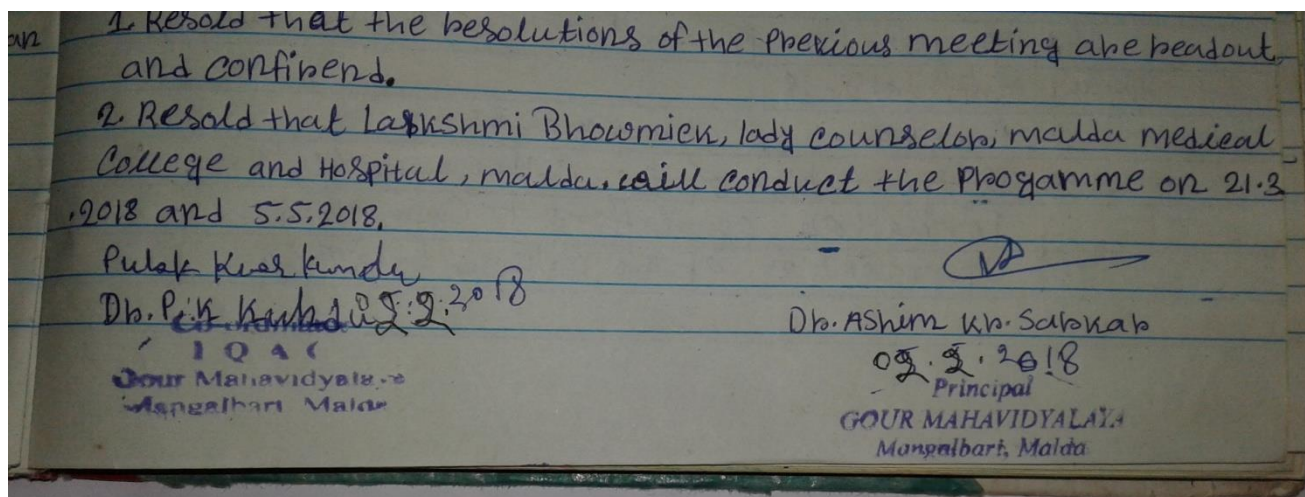 an
1. Resold that the resolutions of the previous meeting are readout
and confirend.
2. Resold that Lakshmi Bhowmick, lady counselor, malda medical
College and Hospital, malda. will conduct the Progamme on 21.3
.2018 and 5.5.2018.
Pulak Kundu
Dr. P. K. Kundu 2.2018
IQAC
Gour Mahavidyalaya
Mangalbari Malda
Dr. Ashim Kr. Sarkar
2.2018
Principal
GOUR MAHAVIDYALAYA
Mangalbari, Malda